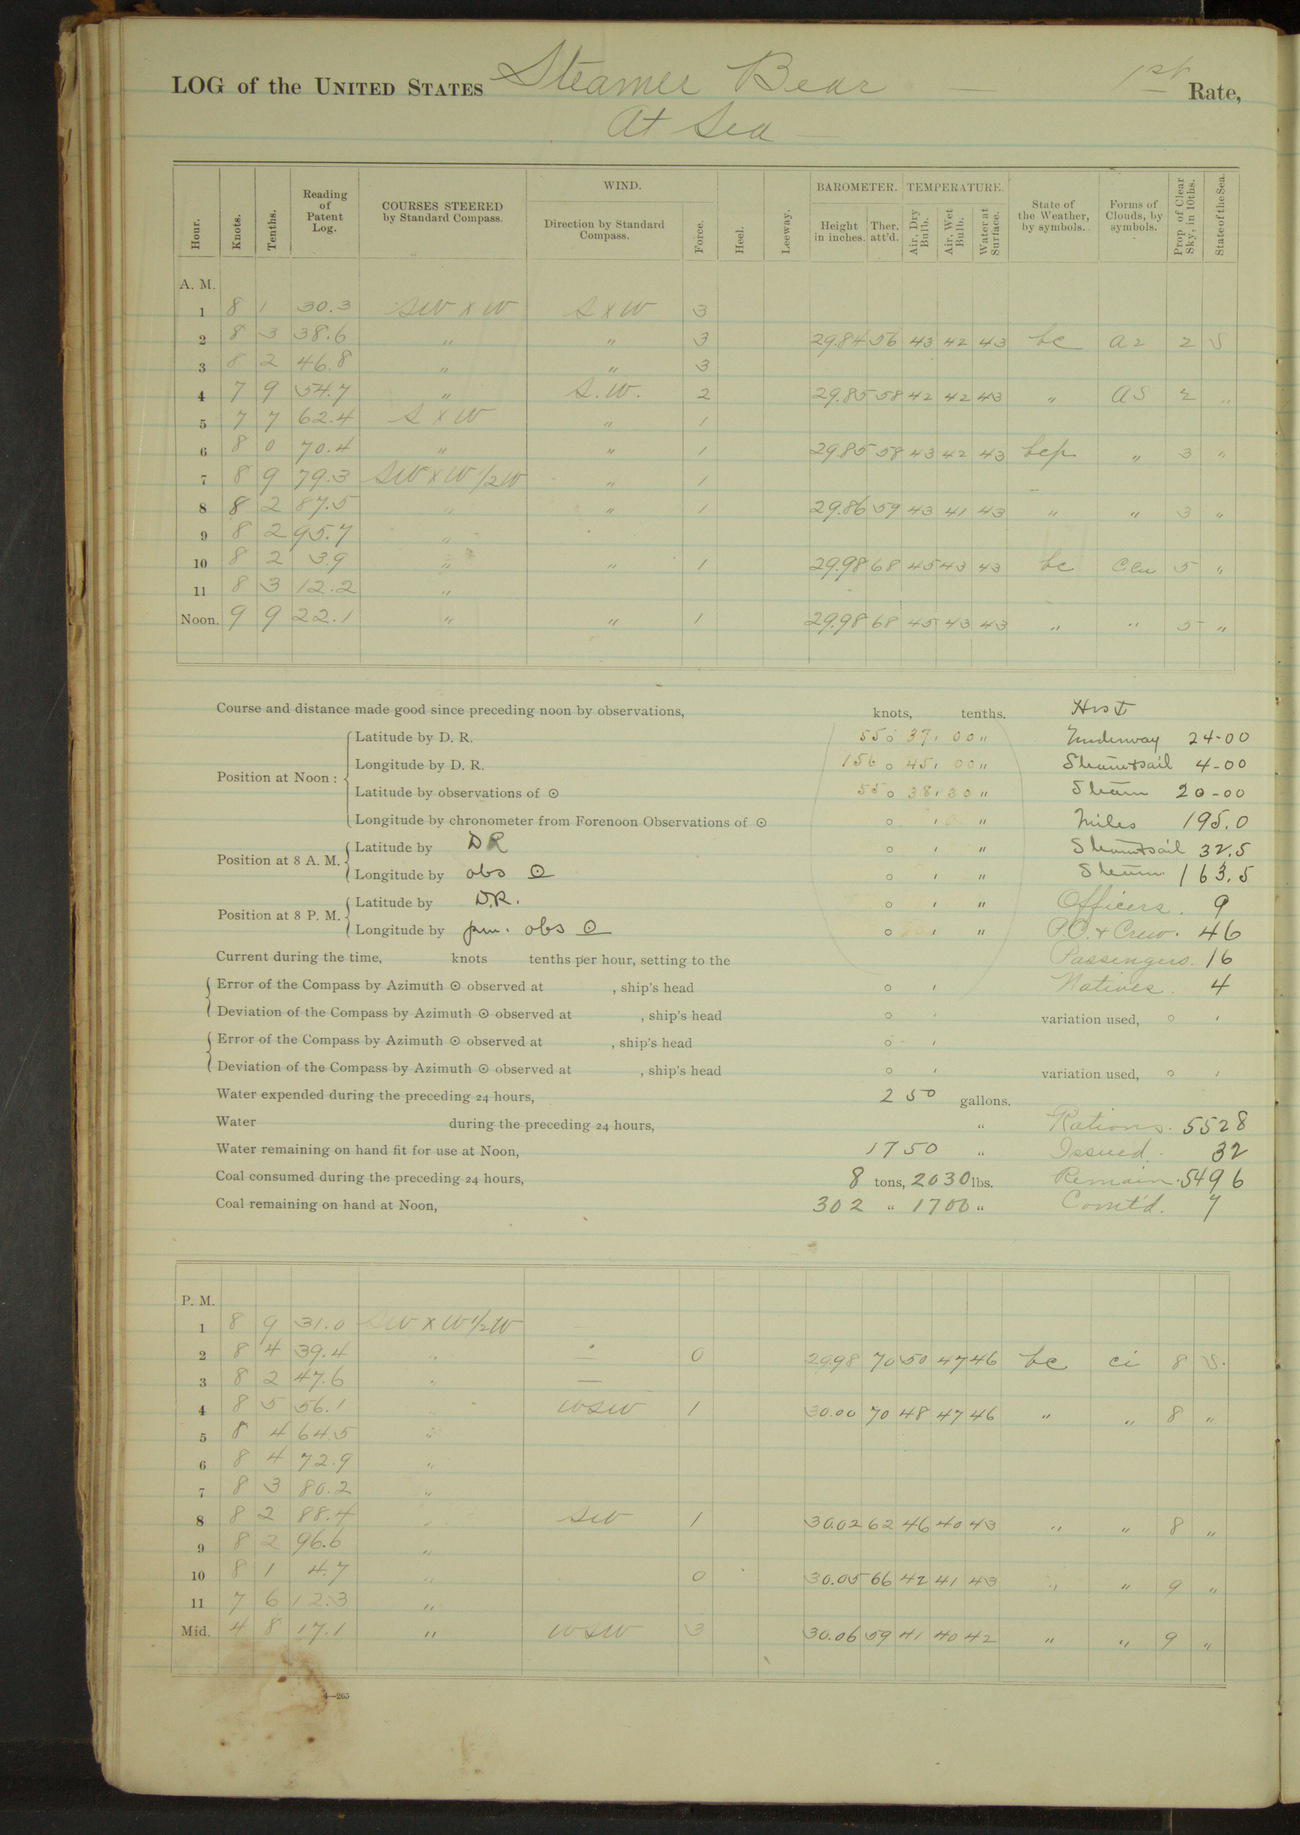 LOG of the UNITED STATES Steamer Bear — 1st Rate,
At Sea —
Hour. Knots. Tenths. Reading of Patent Log. COURSES STEERED by Standard Compass. WIND. Direction by Standard Compass. Force. Heel. Leeway. BAROMETER. Height in inches. Ther. att'd. TEMPERATURE. Air, Dry Bulb. Air, Wet Bulb. Water at Surface. State of the Weather, by symbols. Forms of Clouds, by symbols. Prop. of Clear Sky, in 10ths. State of the Sea.
A. M.
1 8 1 30.3 SW x W S x W 3
2 8 3 38.6 " " 3 29.84 56 43 42 43 bc as 2 S
3 8 2 46.8 " " 3
4 7 9 54.7 " S.W. 2 29.85 58 42 42 43 " as 2 "
5 7 7 62.4 S x W " 1
6 8 0 70.4 " " 1 29.85 58 43 42 43 bcp " 3 "
7 8 9 79.3 SW x W 1/2 W " 1
8 8 2 87.5 " " 1 29.86 59 43 41 43 " " 3 "
9 8 2 95.7 "
10 8 2 3.9 " " 1 29.98 68 45 43 43 bc c.cu 5 "
11 8 3 12.2 "
Noon. 9 9 22.1 " " 1 29.98 68 45 43 43 " " 5 "
Course and distance made good since preceding noon by observations, knots, tenths.
Position at Noon: Latitude by D. R. 55° 37' 00" Underway 24-00
Longitude by D. R. 156° 45' 00" Steam & sail 4-00
Latitude by observations of ☉ 55° 38' 30" Steam 20-00
Longitude by chronometer from Forenoon Observations of ☉ ° ' " Miles 195.0
Position at 8 A. M. Latitude by DR ° ' " Steam & sail 32.5
Longitude by obs ☉ ° ' " Steam 163.5
Position at 8 P. M. Latitude by D.R. ° ' " Officers. 9
Longitude by pm. obs ☉ ° ' " P.O. & Crew. 46
Current during the time, knots tenths per hour, setting to the Passengers. 16
Error of the Compass by Azimuth ☉ observed at , ship's head ° ' Natives. 4
Deviation of the Compass by Azimuth ☉ observed at , ship's head ° ' variation used, ° '
Error of the Compass by Azimuth ☉ observed at , ship's head ° '
Deviation of the Compass by Azimuth ☉ observed at , ship's head ° ' variation used, ° '
Water expended during the preceding 24 hours, 250 gallons.
Water during the preceding 24 hours, " Rations. 5528
Water remaining on hand fit for use at Noon, 1750 " Issued. 32
Coal consumed during the preceding 24 hours, 8 tons, 2030 lbs. Remain. 5496
Coal remaining on hand at Noon, 302 " 1700 " Com't'd. 7
P. M.
1 8 9 31.0 SW x W 1/2 W
2 8 4 39.4 " — 0 29.98 70 50 47 46 bc ci 8 S.
3 8 2 47.6 " —
4 8 5 56.1 WSW 1 30.00 70 48 47 46 " " 8 "
5 8 4 64.5 "
6 8 4 72.9 "
7 8 3 80.2 "
8 8 2 88.4 " SW 1 30.02 62 46 40 43 " " 8 "
9 8 2 96.6 "
10 8 1 4.7 " 0 30.05 66 42 41 43 " " 9 "
11 7 6 12.3 "
Mid. 4 8 17.1 " WSW 3 30.06 59 41 40 42 " " 9 "
4—265